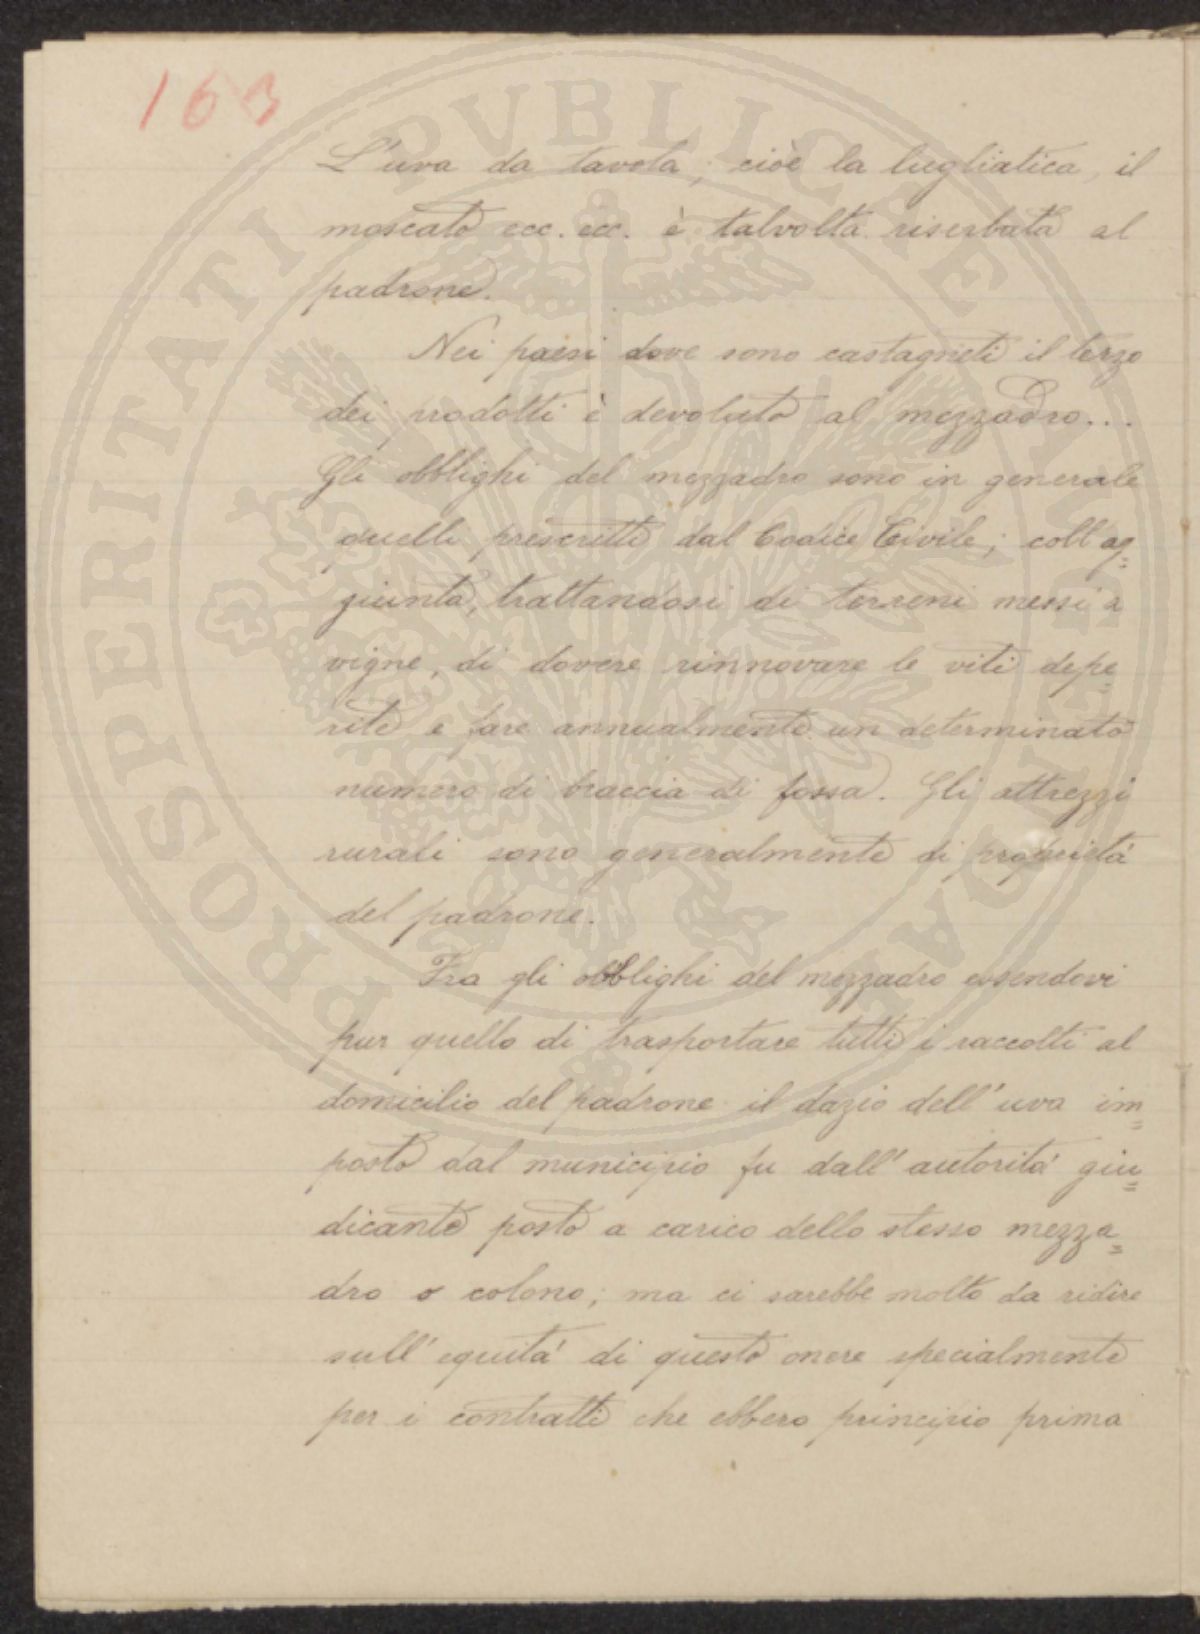 163
L'uva da tavola, cioè la lugliatica, il
moscato ecc. ecc. è talvolta riserbata al
padrone.
Nei paesi dove sono castagneti il terzo
dei prodotti è devoluto al mezzadro...
Gli obblighi del mezzadro sono in generale
quelli prescritti dal Codice Civile; coll'ag=
giunta, trattandosi di terreni messi a
vigne, di dovere rinnovare le viti depe=
rite e fare annualmente un determinato
numero di braccia di fossa. Gli attrezzi
rurali sono generalmente di proprietà
del padrone.
Fra gli obblighi del mezzadro essendovi
pur quello di trasportare tutti i raccolti al
domicilio del padrone il dazio dell'uva im=
posto dal municipio fu dall'autorità giu=
dicante posto a carico dello stesso mezza=
dro o colono; ma ci sarebbe molto da ridire
sull'equità di questo onere specialmente
per i contratti che ebbero principio prima
PROSPERITATI PVBLICAE AVGENDAE